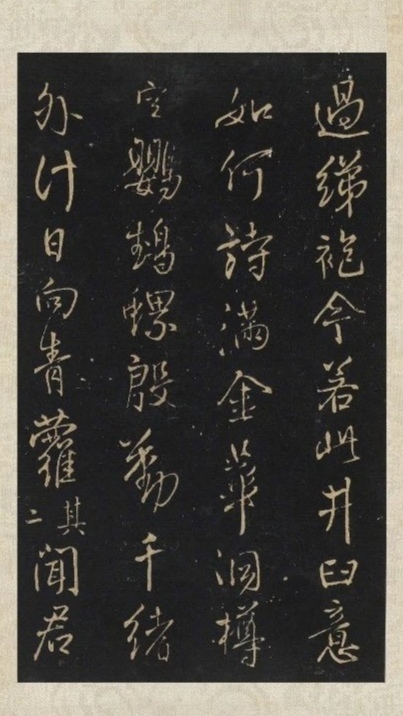 過綈袍今若此井臼意
如何詩滿金華洞樽
空鸚鵡螺殷勤千緒
外計日向青蘿其二聞君